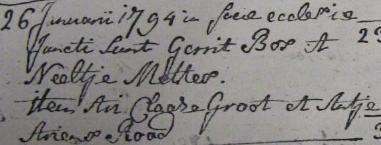 26 Januarii 1794 in facie ecclesiæ
Juncti sunt Gerrit Bos et 23
Neeltje Metter.
item Ari Claase Groot et Antje
Ariens Rood 3